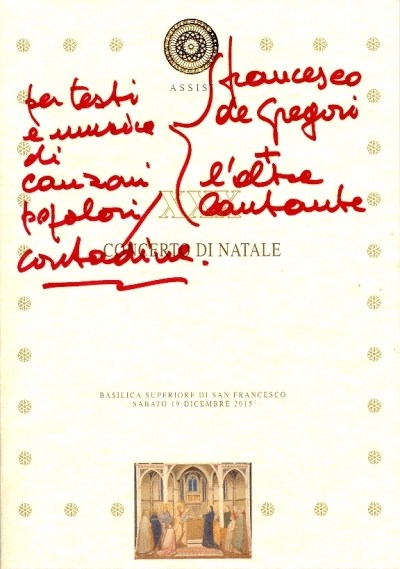 ASSIS
per testi
e musica
di
canzoni
popolari
contadine.
francesco
de Gregori
+
l'altra
cantante
XXX
CONCERTO DI NATALE
BASILICA SUPERIORE DI SAN FRANCESCO
SABATO 19 DICEMBRE 2015